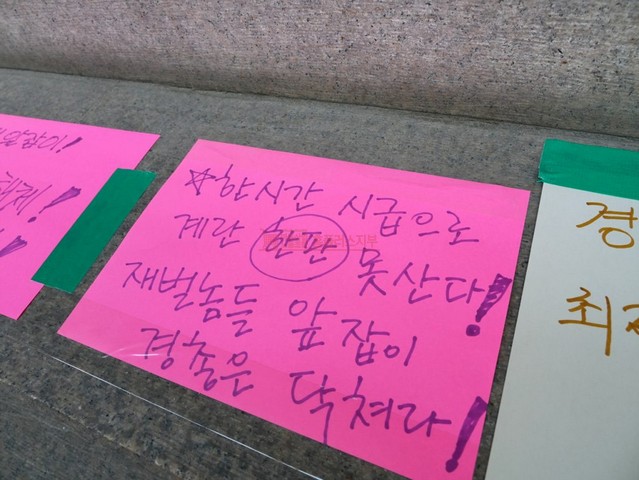 앞잡이!
☆한시간 시급으로
계란 한판 못산다!
재벌놈들 앞잡이
경총은 닥쳐라!
경
최